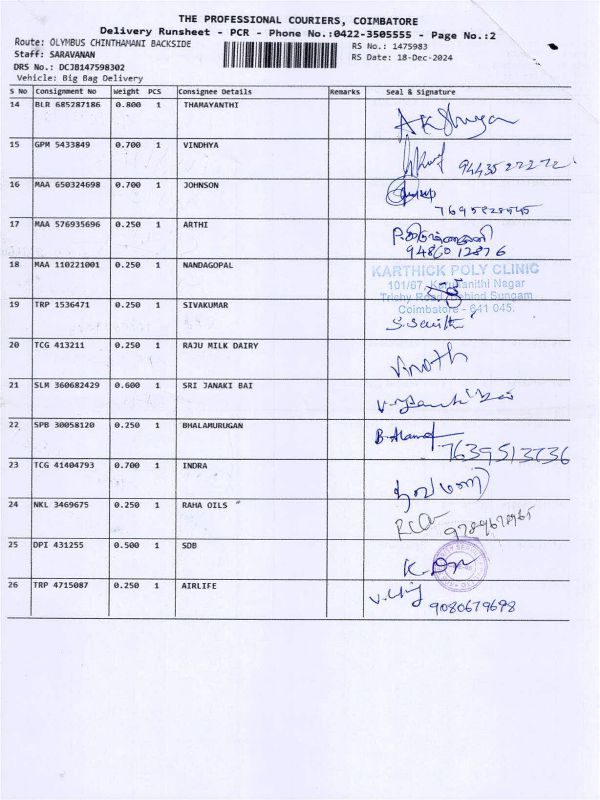 THE PROFESSIONAL COURIERS, COIMBATORE
Delivery Runsheet - PCR - Phone No.:0422-3505555 - Page No.:2
Route: OLYMBUS CHINTHAMANI BACKSIDE
RS No.: 1475983
Staff: SARAVANAN
RS Date: 18-Dec-2024
DRS No.: DCJB147598302
Vehicle: Big Bag Delivery
S No Consignment No Weight PCS Consignee Details Remarks Seal & Signature
14 BLR 685287186 0.800 1 THAMAYANTHI
15 GPM 5433849 0.700 1 VINDHYA
16 MAA 650324698 0.700 1 JOHNSON
17 MAA 576935696 0.250 1 ARTHI
9486012876
18 MAA 110221001 0.250 1 NANDAGOPAL
KARTHICK POLY CLINIC
101/67, Karunanithi Nagar
Trichy Road, Behind Sungam
Coimbatore - 641 045.
19 TRP 1536471 0.250 1 SIVAKUMAR
20 TCG 413211 0.250 1 RAJU MILK DAIRY
Vinoth
21 SLM 360682429 0.600 1 SRI JANAKI BAI
22 SPB 30058120 0.250 1 BHALAMURUGAN
7639513736
23 TCG 41404793 0.700 1 INDRA
24 NKL 3469675 0.250 1 RAHA OILS
25 DPI 431255 0.500 1 SDB
26 TRP 4715087 0.250 1 AIRLIFE
9080679698